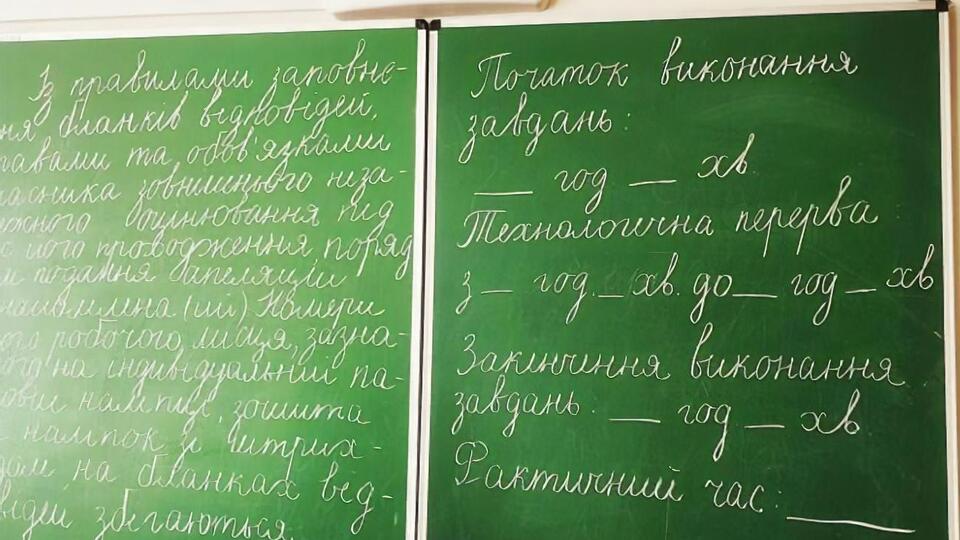 Із правилами заповне-
ня бланків відповідей,
равами та обов'язками
часника зовнішнього неза-
ежного оцінювання під
с його проходження, поряд
м подання апеляції
знайомлена (ий). Номери
ого робочого місця, зазна-
ого на індивідуальній па-
овій наліпці, зошита
наліпок зі штрих-
дом, на бланках від-
відей збігаються.
Початок виконання
завдань:
__ год __ хв.
Технологічна перерва:
з __ год. __ хв. до __ год __ хв
Закінчення виконання
завдань: __ год __ хв
Фактичний час: ____